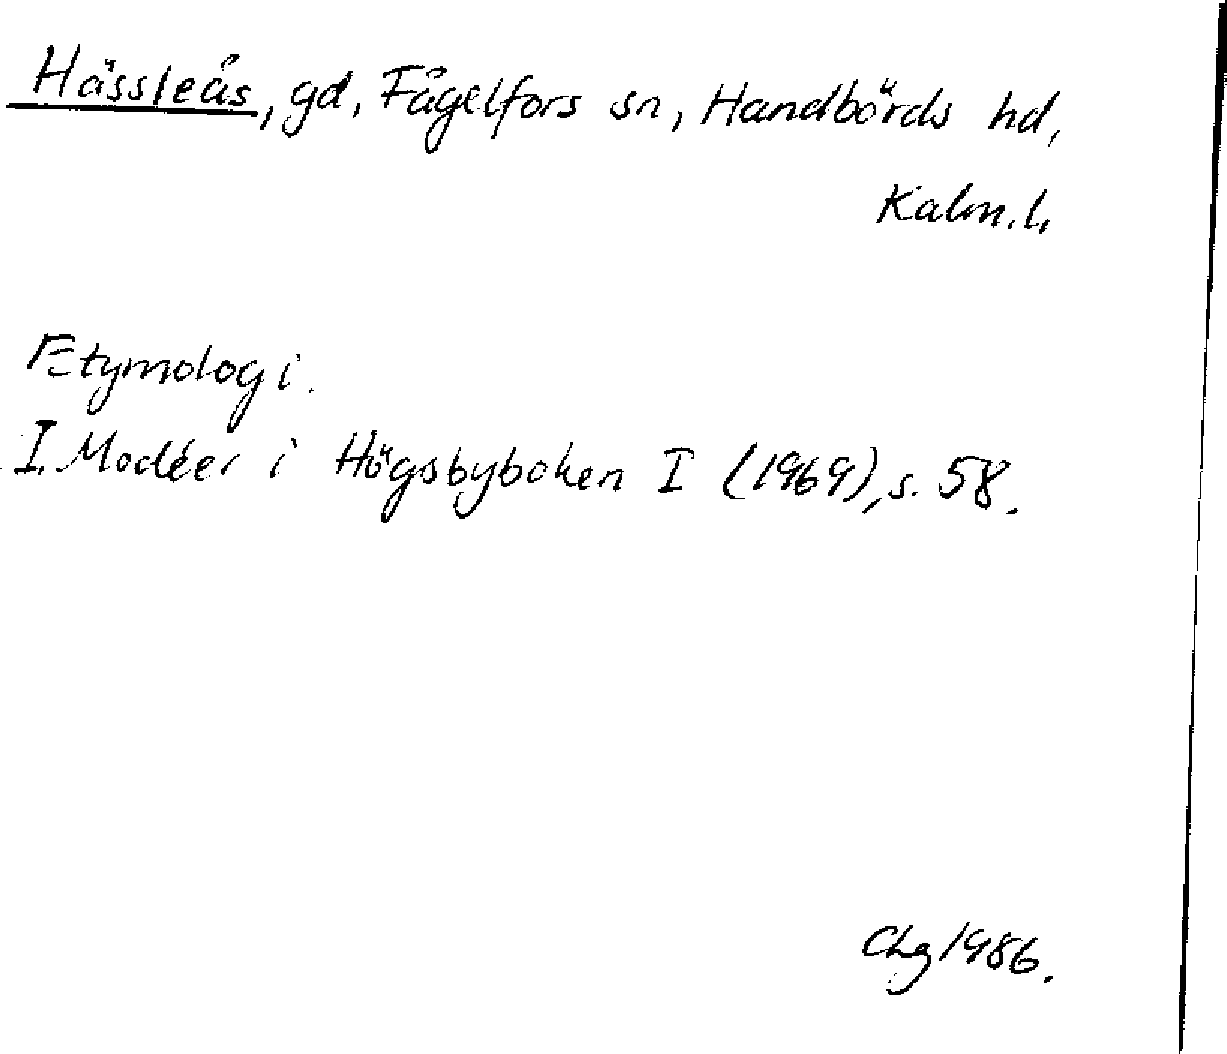 Hässleås, gd, Fågelfors sn, Handbörds hd,
Kalm. l.
Etymologi.
I. Modéer i Högsbyboken I (1969), s. 58.
Chg 1986.